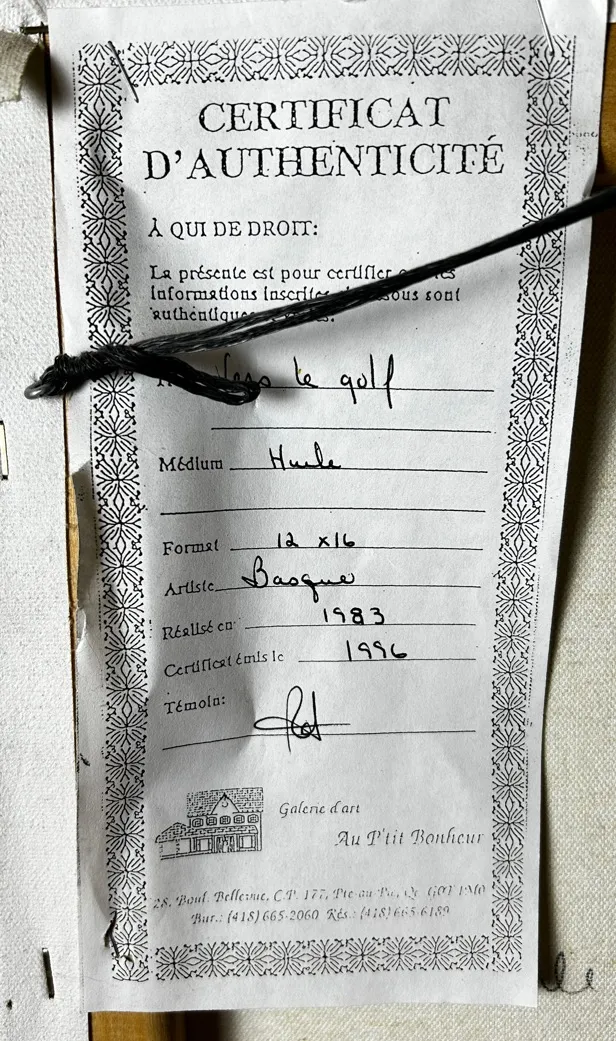 CERTIFICAT
D'AUTHENTICITÉ
À QUI DE DROIT:
La présente est pour certifier
informations inscrites sous sont
authentiques
le golf
Médium Huile
Format 12 x16
Artiste Basque
Réalisé en: 1983
Certificat émis le 1996
Témoin:
Galerie d'art
Au P'tit Bonheur
28, Boul. Bellevue, C.P. 177, Pte-au-Pic, Qc G0T 1M0
Bur.: (418) 665-2060 Rés.: (418) 665-6189